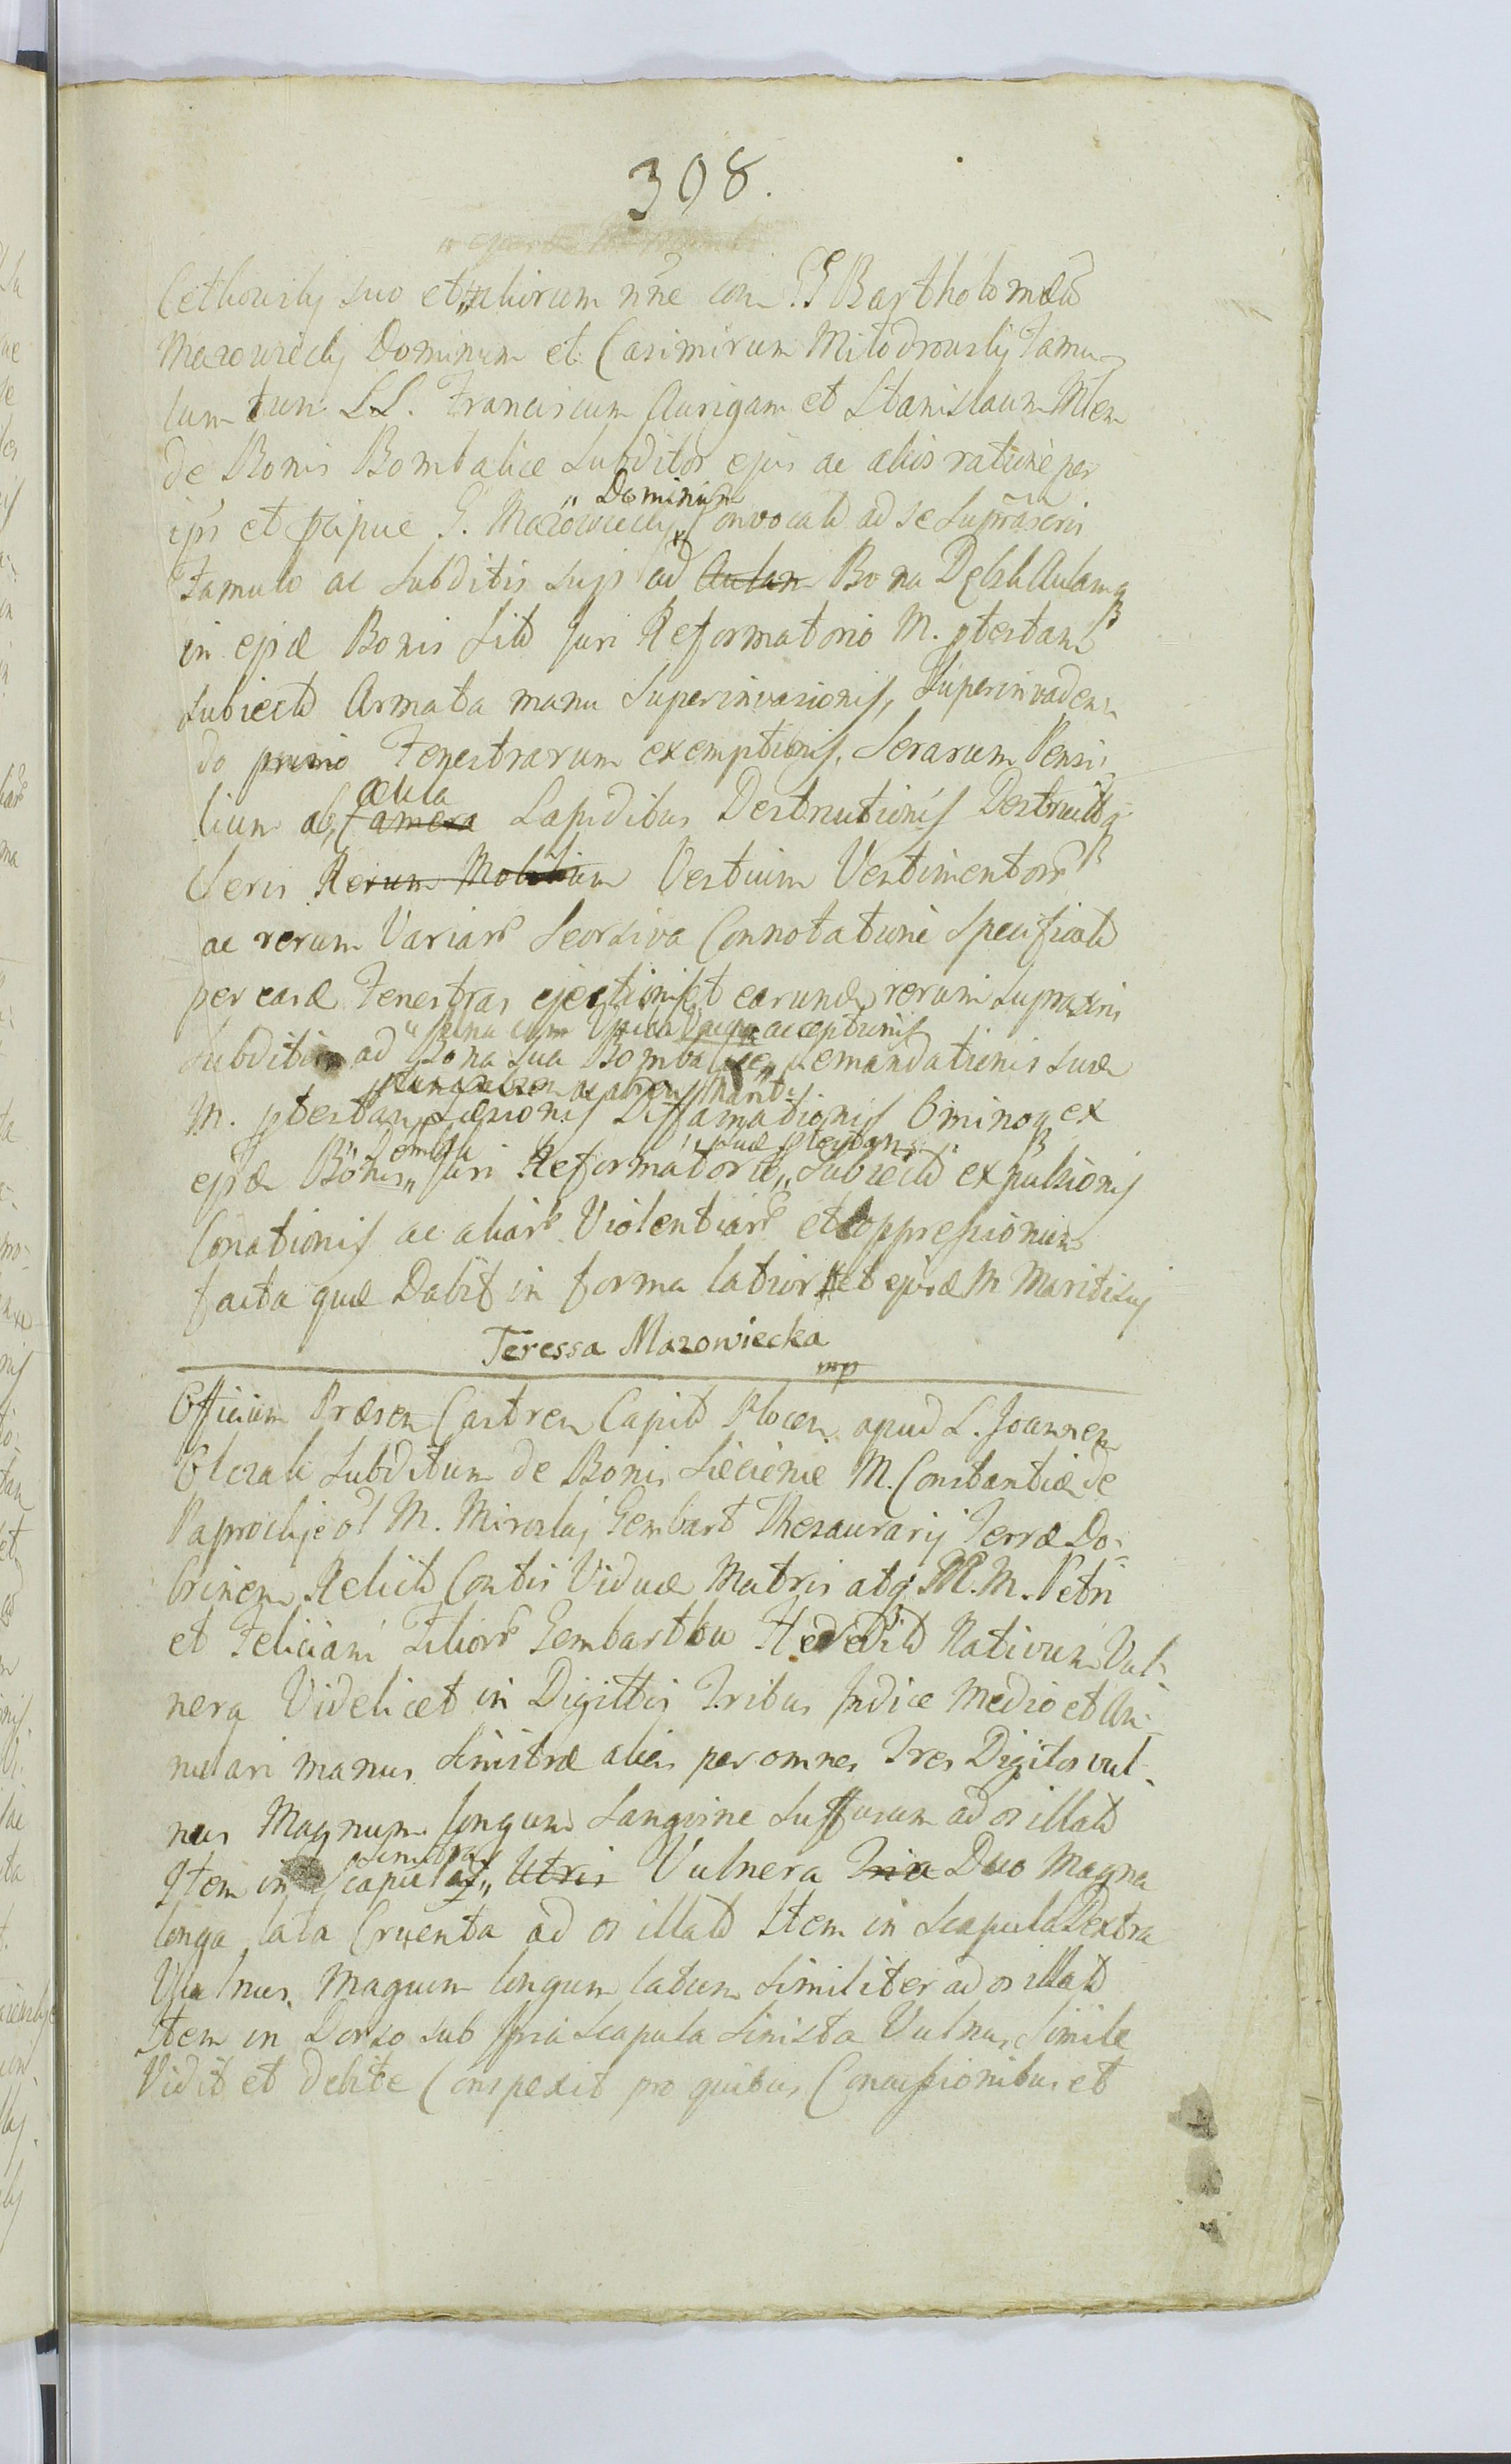 308.
suo et aliorum nne con. GG Bartholomæũ
Mazowiecky Dominum et Casimirum Milodrowsky Famu-
lum tum LL. Franciscum Aurigam et Stanislaum
de Bonis Bombalice Subditos ejus ac alios ratione per
ips et pcipue G. Mazowiecky „ Dominum Convocatis ad se Suprascris
Famulo ac Subditis sujs ad Autam Bona Aulamq
in ejsd Bonis Sit Juri Reformatorio M. ptestants
Subiect Armata manu Superinvasionis, Superinvaden-
do primo Fenestrarum exemptionis, Serarum Pensi-
lium ab Camera Lapidibus Destructionis Destructisq
Seris Rerum Mobilium Vestium Vestimentorr
ac rerum Variarr Seorsiva Connotatione Specificatis
per easd Fenestras ejectionis et earund rerum Suprascris
Subditis ad Bona sua Bombalice demandationis suæ
M. ptestan Læsionis Diffamationis Ominoq ex
ejsd Bonis Juri Reformatorio „ suæ ptestans „ Subiect expulsionis
Conationis ac aliarr Violentiarr et oppressionum
facta quæ Dabit in forma latiori et ejusd M Mariti sui
Teressa Mazowiecka
mp
Officium Præsen Castren Capit Plocen apud L. Joannem
Subditum de Bonis Siecienie M. Constantiæ de
Paprockje ol M. Mirosky Gembart Thesaurarij Terræ Do-
brinen Relict Contis Viduæ Matris atq M.M. Petri
et Feliciani Filiorr Gembartow Heredit Nativum Vul-
nera Videlicet in Digittis Tribus Indice Medio et An-
nulari manus Sinistræ alias per omnes Tres Digitos vul-
nus Magnum longum Sanguine Suffusum ad os illat
Item in Scapula „ Sinistra Utris Vulnera Tria Duo Magna
longa lata Cruenta ad os illat Item in Scapula Dextra
Vulnus Magnum longum latum Similiter ad os illat
Item in Dorso sub Ipsa Scapula Sinista Vulnus Simile
Vidit et debite Conspexit pro quibus Concussionibus et